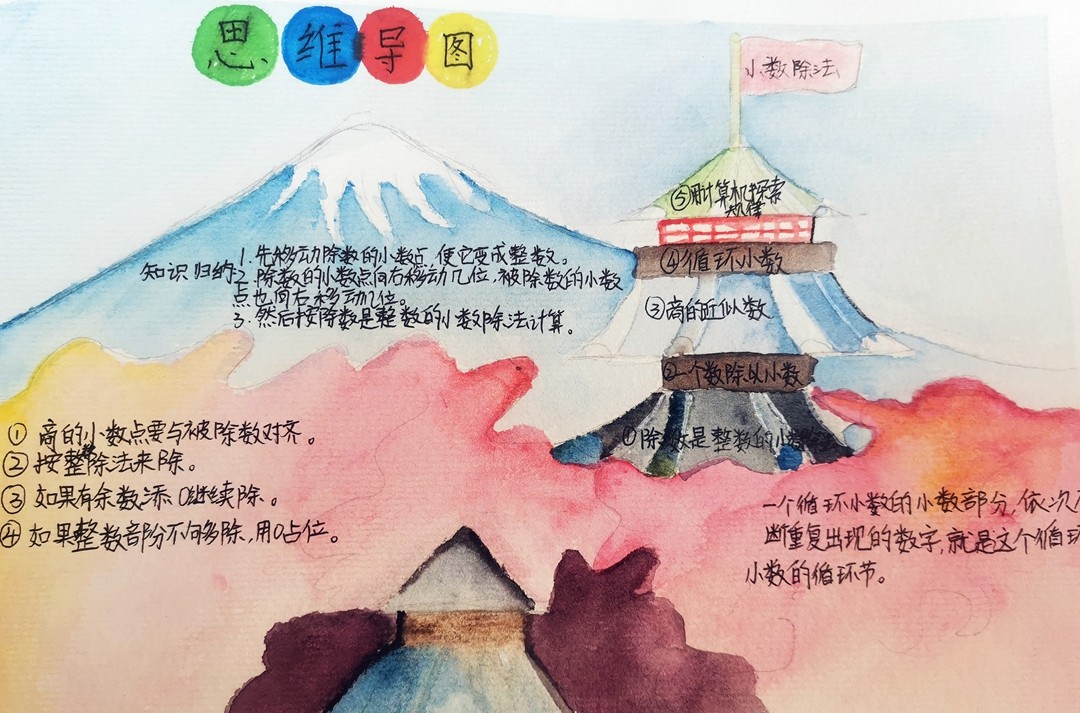 思维导图
小数除法
⑤用计算机探索
规律
④循环小数
③商的近似数
②一个数除以小数
①除数是整数的小数
知识归纳:
1.先移动除数的小数点,使它变成整数。
2.除数的小数点向右移动几位,被除数的小数
点也向右移动几位。
3.然后按除数是整数的小数除法计算。
①商的小数点要与被除数对齐。
②按整数除法来除。
③如果有余数添0继续除。
④如果整数部分不够除,用0占位。
一个循环小数的小数部分,依次不
断重复出现的数字,就是这个循环
小数的循环节。